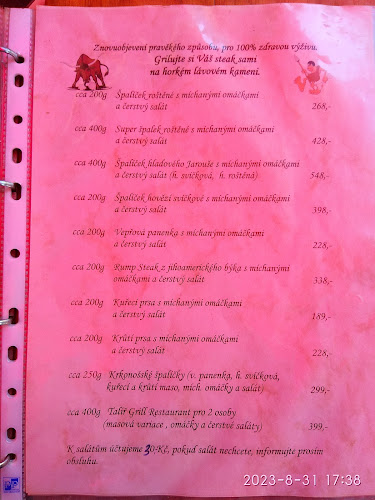 Znovuobjevení pravěkého způsobu, pro 100% zdravou výživu.
Grilujte si Váš steak sami
na horkém lávovém kameni.
cca 200g Špalíček roštěné s míchanými omáčkami
a čerstvý salát 268,-
cca 400g Super špalek roštěné s míchanými omáčkami
a čerstvý salát 428,-
cca 400g Špalíček hladového Jarouše s míchanými omáčkami
a čerstvý salát (h. svíčková, h. roštěná) 548,-
cca 200g Špalíček hovězí svíčkové s míchanými omáčkami
a čerstvý salát 398,-
cca 200g Vepřová panenka s míchanými omáčkami
a čerstvý salát 228,-
cca 200g Rump Steak z jihoamerického býka s míchanými
omáčkami a čerstvý salát 338,-
cca 200g Kuřecí prsa s míchanými omáčkami
a čerstvý salát 189,-
cca 200g Krůtí prsa s míchanými omáčkami
a čerstvý salát 228,-
cca 250g Krkonošské špalíčky (v. panenka, h. svíčková,
kuřecí a krůtí maso, mích. omáčky a salát) 299,-
cca 400g Talíř Grill Restaurant pro 2 osoby
(masová variace , omáčky a čerstvé saláty) 399,-
K salátům účtujeme 30-Kč, pokud salát nechcete, informujte prosím
obsluhu.
2023-8-31 17:38